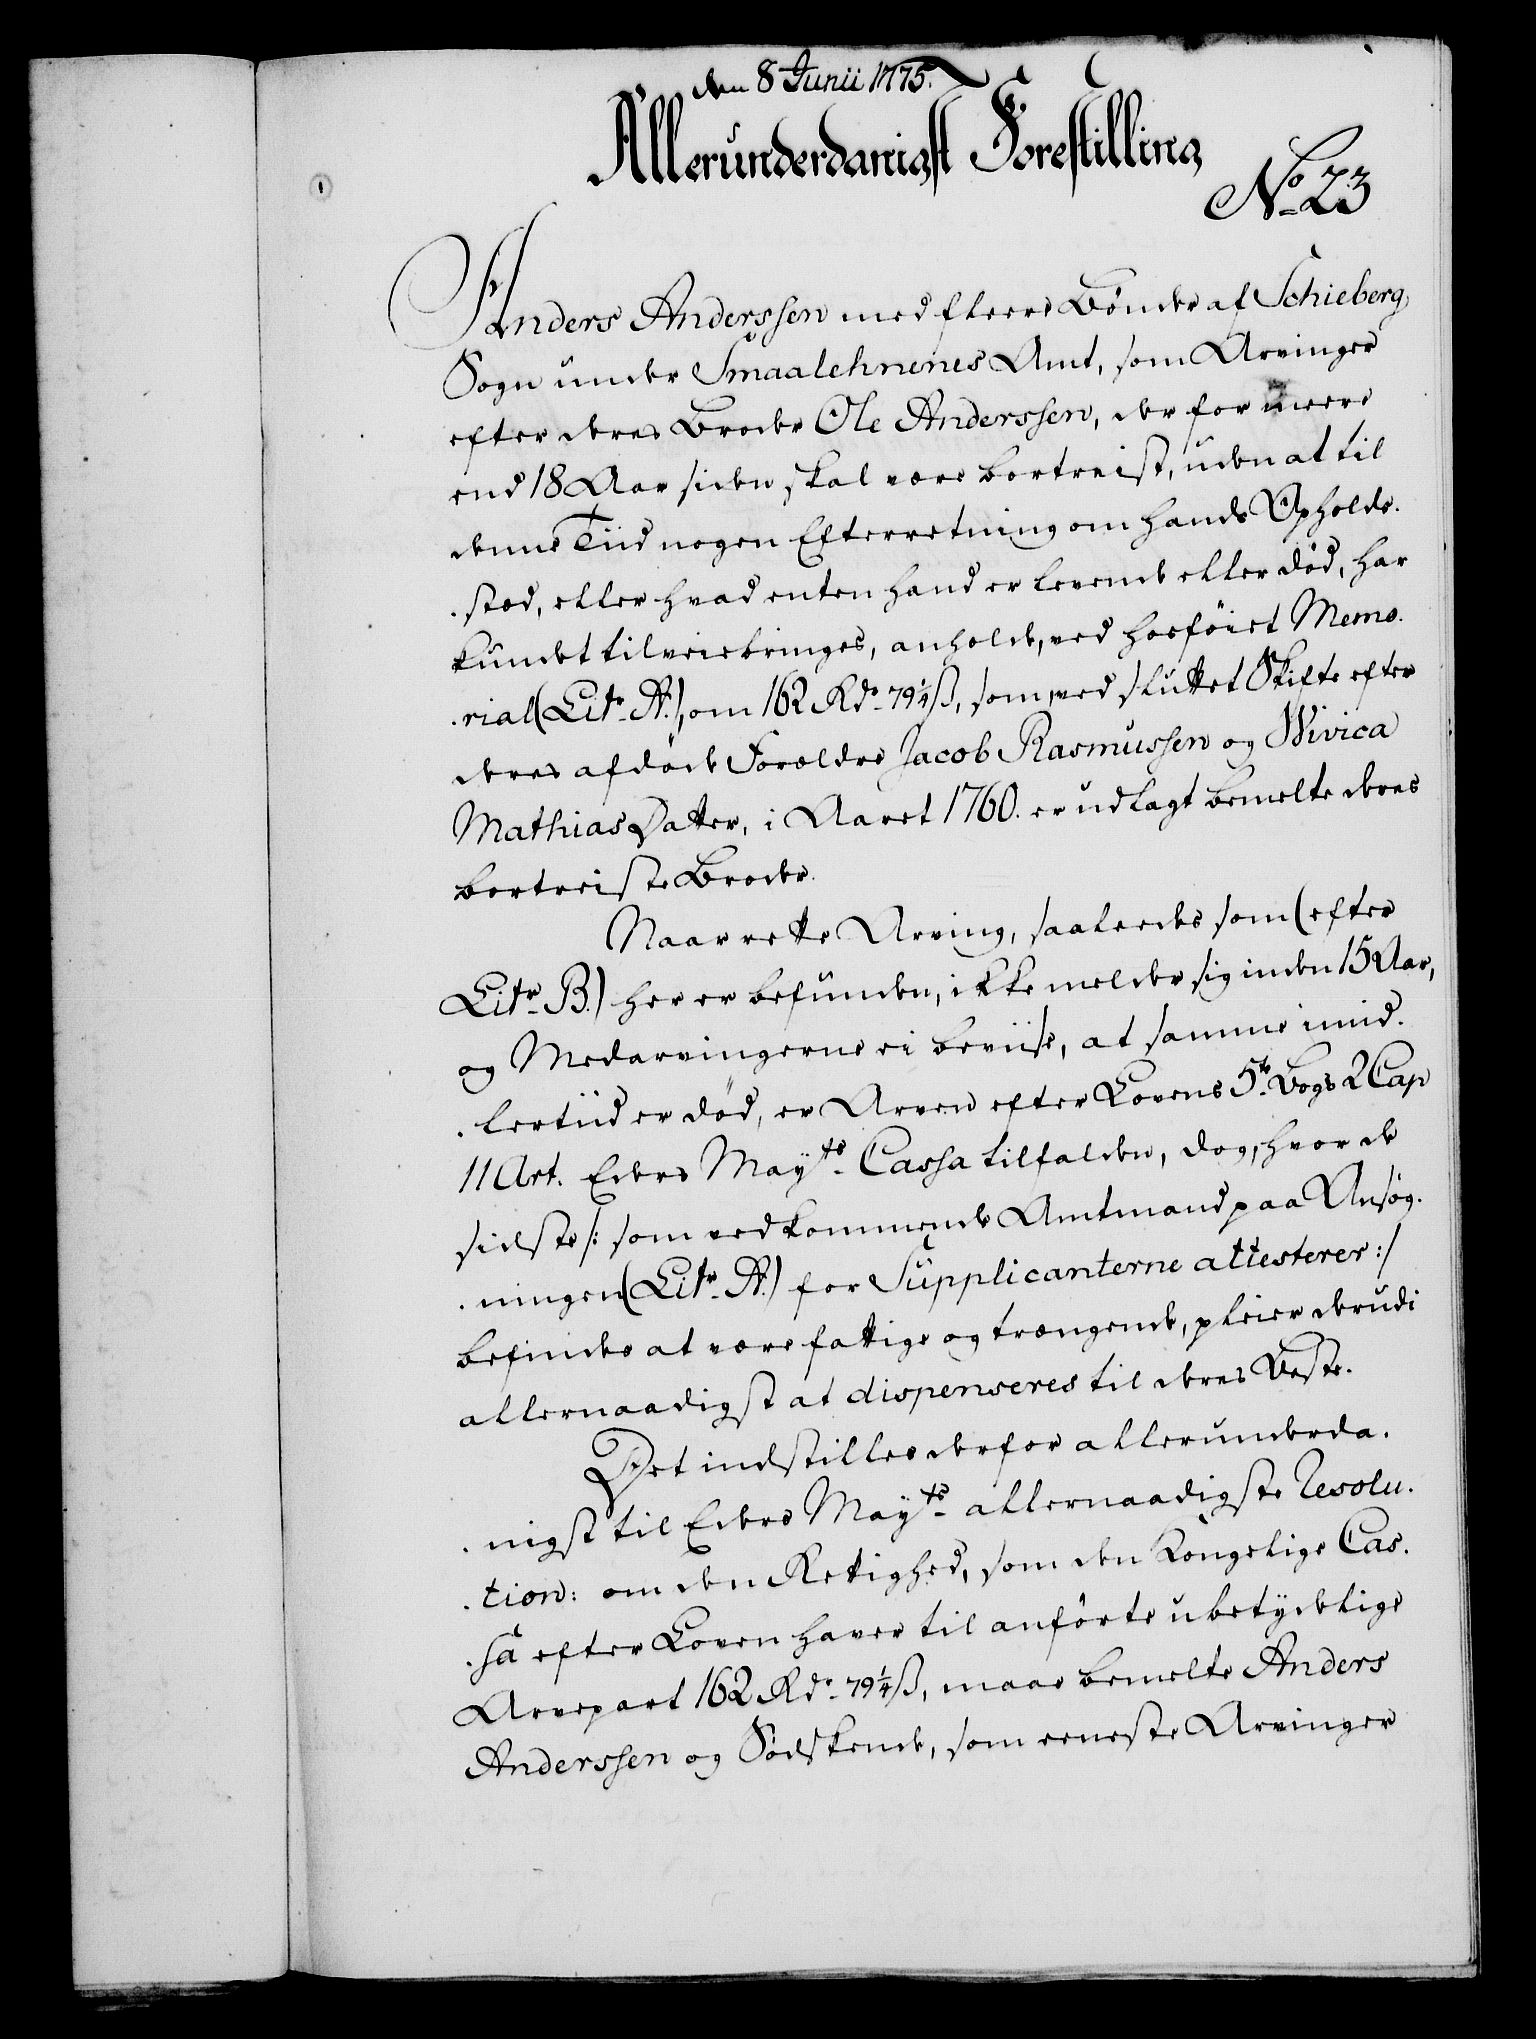 den 8 Junii 1775.
Allerunderdanigst Forestilling
No. 23
Anders Anderssen med fleere Bønder af Schieberg
Sogn under Smaalehnenes Amt, som Arvinger
efter deres Broder Ole Anderssen, der for meere
end 18 Aar siden skal være bortreist, uden at til
denne Tiid nogen Efterretning om hands Opholds-
-stæd, eller hvad enten hand er levende eller död, har
kundet tilveiebringes, anholde, ved hosföiet Memo-
-rial (Litr. A.), om 162 Rdr. 79¼ ß, som, ved sluttet Skifte efter
deres afdöde Forældre Jacob Rasmussen og Wivica
Mathias Datter, i Aaret 1760. er udlagt bemelte deres
bortreiste Broder.
Naar rette Arving, saaleedes som (efter
Litr. B.) her er befunden, ikke melder sig inden 15 Aar,
og Medarvingerne ei beviise, at samme imid-
-lertiid er död, er Arven efter Lovens 5te Bogs 2 Cap
11 Art. Eders Mayts. Cassa tilfalden, dog, hvor de
sidste /: som vedkommende Amtmand paa Ansög-
-ningen (Litr. A.) for Supplicanterne attesterer :/
befindes at være fattige og trængende, pleier derudi
allernaadigst at dispenseres til deres Beste.
Det indstilles derfor allerunderda-
-nigst til Eders Mayts. allernaadigste Resolu-
-tion: om den Rettighed, som den Kongelige Cas-
-sa efter Loven haver til anförte ubetydelige
Arvepart 162 Rdr. 79¼ ß, maae bemelte Anders
Anderssen og Södskende, som eeneste Arvinger